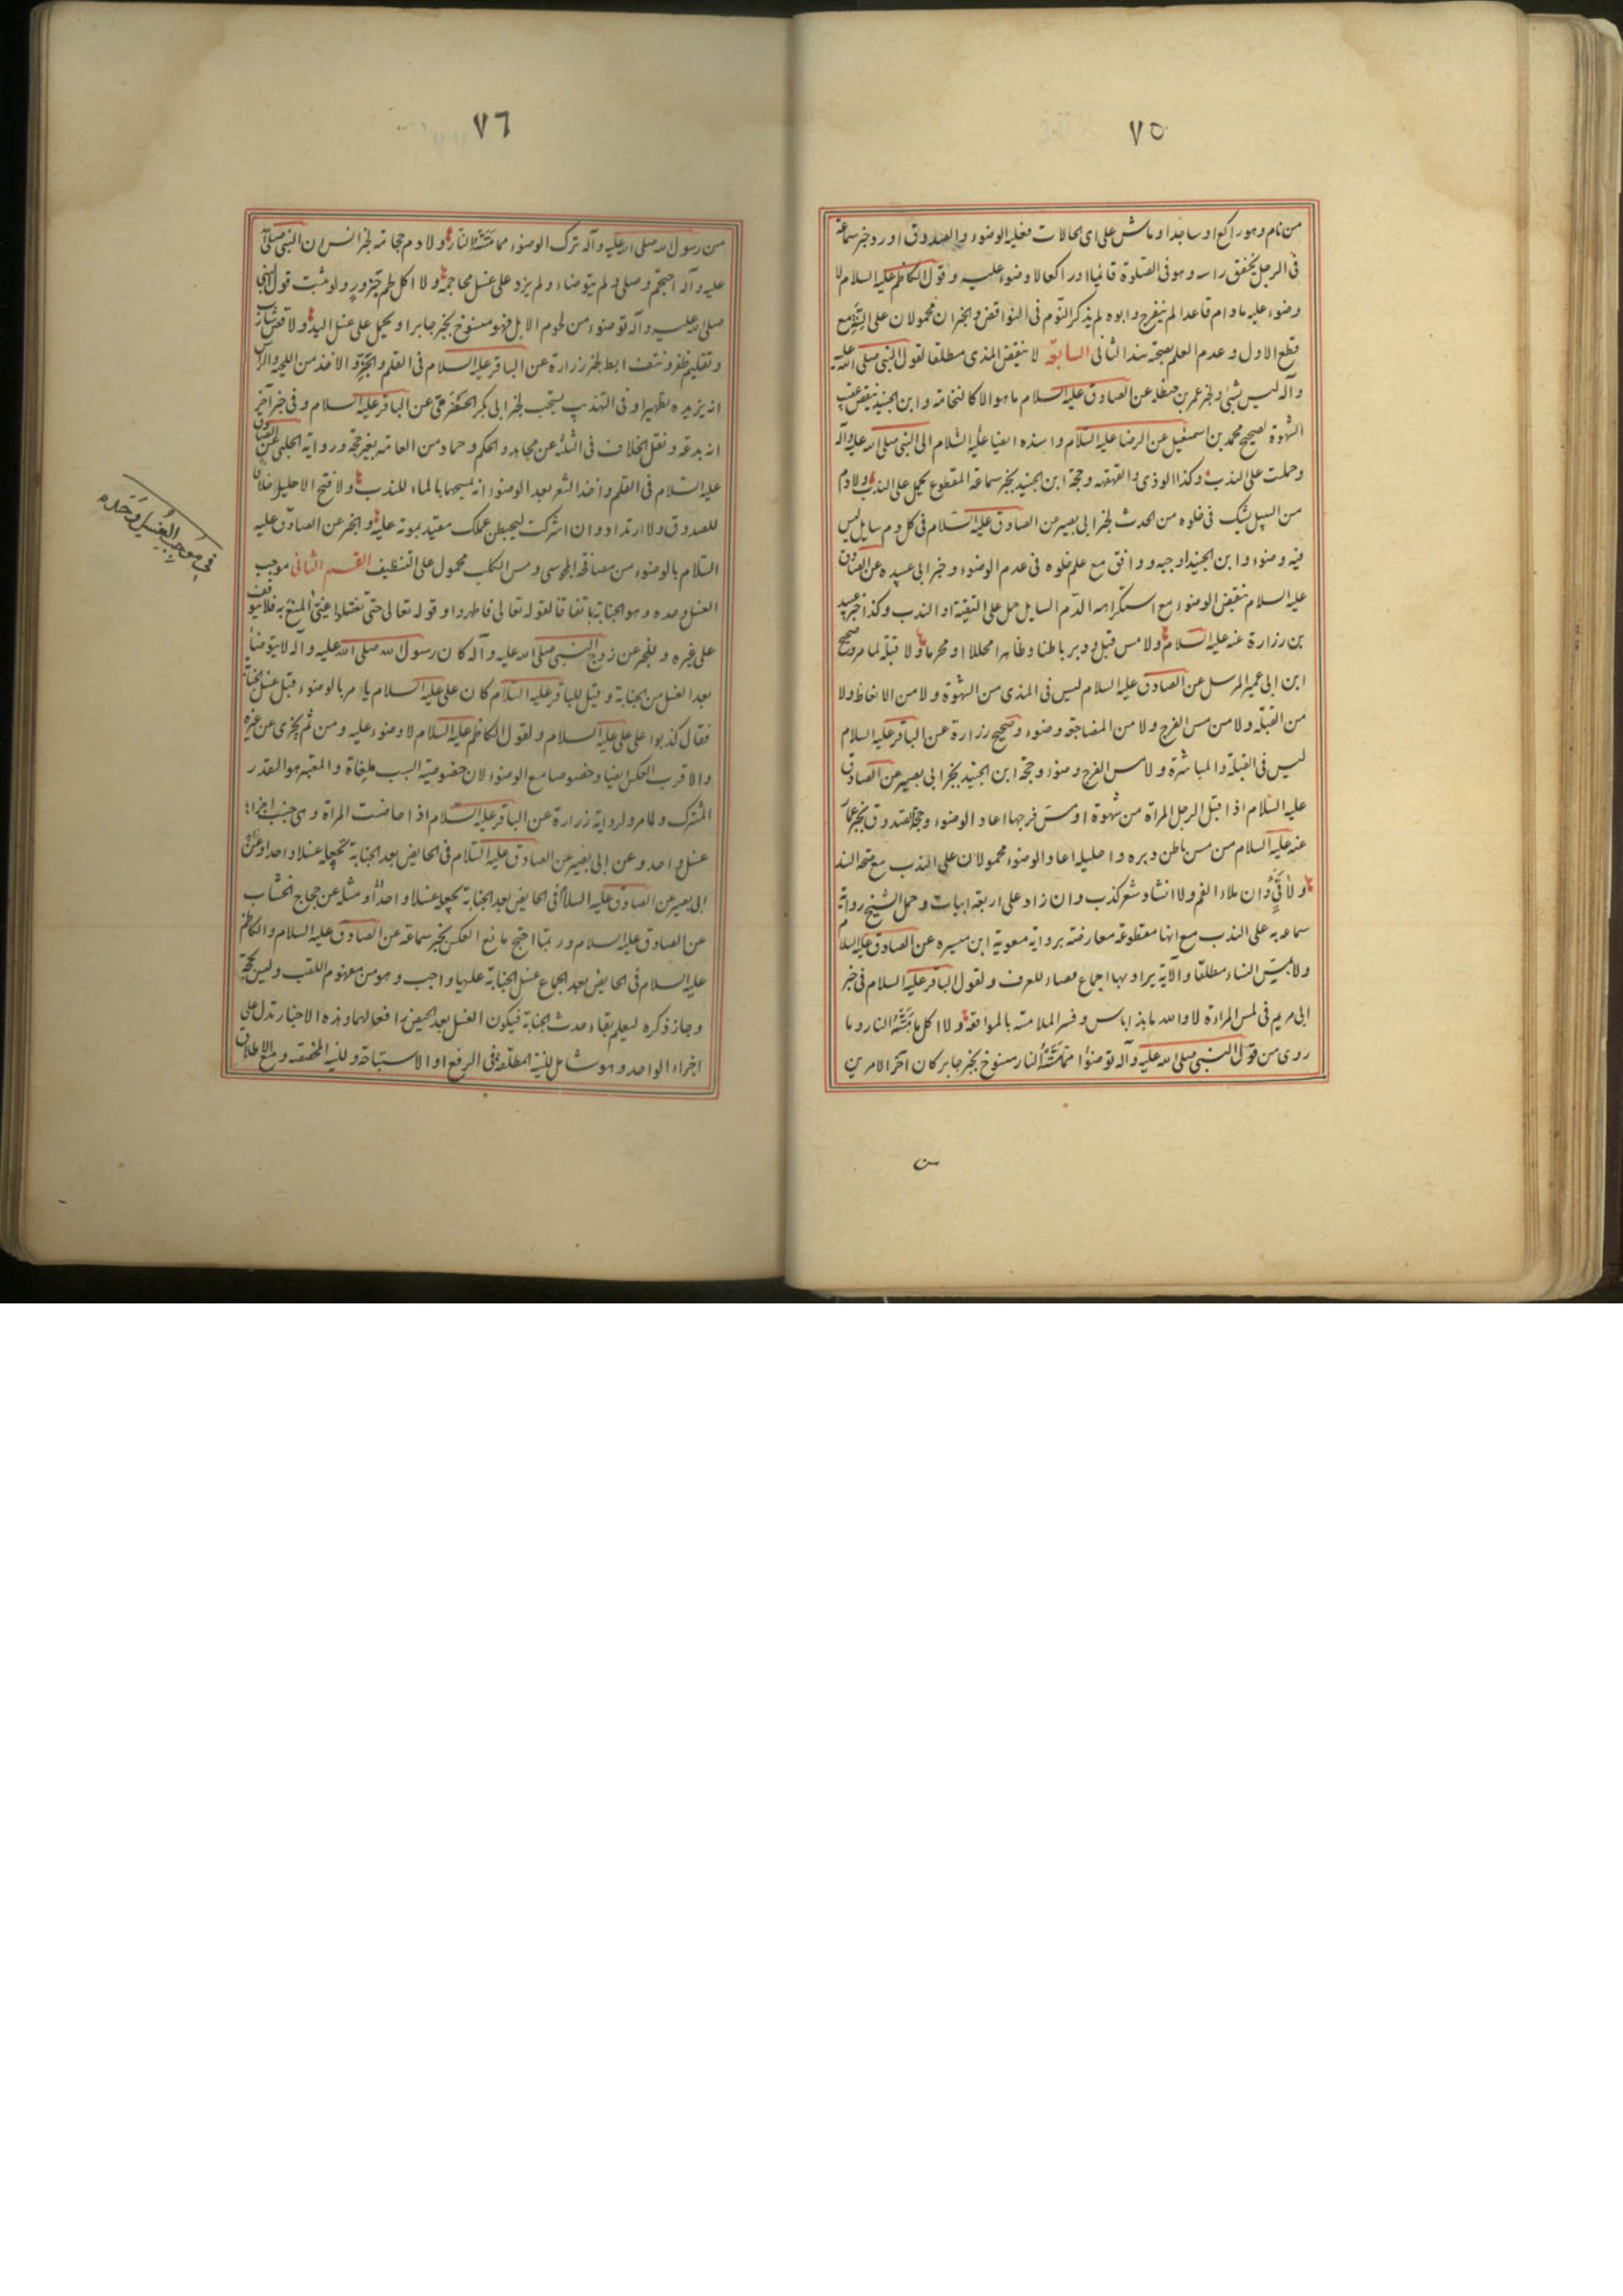 ٧٥
من نام وهو راكع او ساجدا و ماش على اى الحالات فعليه الوضوء والصدوق اورد خبر سماعة
فى الرجل يخفق راسه وهو فى الصلوة قائما او راكعا لا وضوء عليه وقول الكاظم عليه السلام لا
وضوء عليه ما دام قاعدا لم ينفرج وابوه لم يذكر النوم فى النواقض والخبران محمولان على مع
قطع الاول وعدم العلم بصحة سند الثانى السابقة لا ينقض المذى مطلقا لقول النبى صلى الله عليه
وآله ليس بشئ ولخبر عمر بن حنظلة عن الصادق عليه السلام ما هو الا كالنخامة وابن الجنيد ينقض عقيب
الشهوة لصحيح محمد بن اسمعيل عن الرضا عليه السلام واسنده ايضا عليه السلام الى النبى صلى الله عليه وآله
وحملت على الندب وكذا الوذى والقهقهة وحجة ابن الجنيد بخبر سماعة المقطوع يحمل على الندب ولا دم
من السبيل يشك فى خلوه من الحدث لخبر ابى بصير عن الصادق عليه السلام فى كل دم سايل ليس
فيه وضوء وابن الجنيد اوجبه ووافق مع علم خلوه فى عدم الوضوء وخبر ابى عبيده عن الصادق
عليه السلام ينقض الوضوء مع استكراهه الدم السايل حمل على التقية او الندب وكذا خبر عبيد
بن زرارة عنه عليه السلام ولا مس قبل ودبر باطنا وظاهرا محللا او محرما ولا قبلة لما مر وصحيح
ابن ابى عمير المرسل عن الصادق عليه السلام ليس فى المذى من الشهوة ولا من الانعاظ ولا
من القبلة ولا من مس الفرج ولا من المضاجعة وضوء وصحيح زرارة عن الباقر عليه السلام
ليس فى القبلة والمباشرة ولا مس الفرج وضوء وحجة ابن الجنيد بخبر ابى بصير عن الصادق
عليه السلام اذا قبل الرجل المراة من شهوة او مس فرجها اعاد الوضوء وحجة الصدوق بخبر عمار
عنه عليه السلام من مس باطن دبره واحليله اعاد الوضوء محمولان على الندب مع صحة السند
ولا قئ وان ملاء الفم ولا انشاد شعر كذب وان زاد على اربعة ابيات وحمل الشيخ رواية
سماعه به على الندب مع انها مقطوعة معارضته برواية معوية ابن ميسره عن الصادق عليه السلام
ولا بمس النساء مطلقا والآية يراد بها الجماع فصاء للعرف ولقول الباقر عليه السلام فى خبر
ابى مريم فى لمس المراءة لا والله ما بذا باس وفسر الملامسة بالمواقعة ولا اكل ما مسته النار وما
روى من قول النبى صلى الله عليه وآله توضئوا مما مسته النار منسوخ بخبر جابر كان آخر الامرين
٧٦
من رسول الله صلى الله عليه وآله ترك الوضوء مما مسته النار ولا دم حجامة لخبر انس ان النبى صلى الله
عليه وآله احتجم وصلى ولم يتوضاء ولم يزد على غسل محاجمه ولا اكل لحم جزور ولو ثبت قول النبى
صلى الله عليه وآله توضئوا من لحوم الابل فهو منسوخ بخبر جابر او يحمل على غسل اليد ولا قص شارب
وتقليم ظفر ونتف ابط لخبر زرارة عن الباقر عليه السلام فى القلم والجز والاخذ من اللحية والراس
انه يزيده تطهيرا وفى التهذيب يستحب لخبر ابى بكر الحضرمى عن الباقر عليه السلام وفى خبر آخر
انه بدعة ونقل الخلاف فى الثلثه عن مجاهد والحكم وحماد من العامة بغير حجة ورواية الحلبى عن الصادق
عليه السلام فى القلم واخذ الشعر بعد الوضوء انه يمسحها بالماء للندب ولا فتح الاحليل خلافا
للصدوق ولا ارتداد وان اشركت ليحبطن عملك مقيد بموته عليه والخبر عن الصادق عليه
السلام بالوضوء من مصافحة المجوسى ومس الكلب محمول على التنظيف القسم الثانى موجب
الغسل وحده وهو الجنابة باتفاقنا لقوله تعالى فاطهروا وقوله تعالى حتى تغتسلوا غيى المنع به فلا يتوقف
على غيره وللخبر عن زوج النبى صلى الله عليه وآله كان رسول الله صلى الله عليه وآله لا يتوضأ
بعد الغسل من الجنابة وقيل للباقر عليه السلام كان على عليه السلام يامر بالوضوء قبل غسل الجنابة
فقال كذبوا على على عليه السلام ولقول الكاظم عليه السلام لا وضوء عليه ومن ثم يجزى عن غيره
والاقرب العكس ايضا وخصوصا مع الوضوء لان خصوصية السبب ملغاة والمعتبر هو القدر
المشترك ولما مر ولرواية زرارة عن الباقر عليه السلام اذا حاضت المراة وهى جنب اجزاها
غسل واحد وعن ابى بصير عن الصادق عليه السلام فى الحايض بعد الجنابة تجعله غسلا واحدا وعن
ابى بصير عن الصادق عليه السلام فى الحايض بعد الجنابة تجعله غسلا واحدا ومثله عن حجاج الخشاب
عن الصادق عليه السلام وربما احتج مانع العكس بخبر سماعة عن الصادق عليه السلام والكاظم
عليه السلام فى الحايض بعد الجماع غسل الجنابة عليها واجب وهو من مفهوم اللقب وليس بحجة
وجاز ذكره ليعلم بقاء حدث الجنابة فيكون الغسل بعد الحيض رافعا لهما وهذه الاخبار تدل على
اجزاء الواحد وهو شامل للنية المطلقة فى الرفع او الاستباحة وللنية المخصصه ومنع الاطلاق
فى موجب الغسل وحده